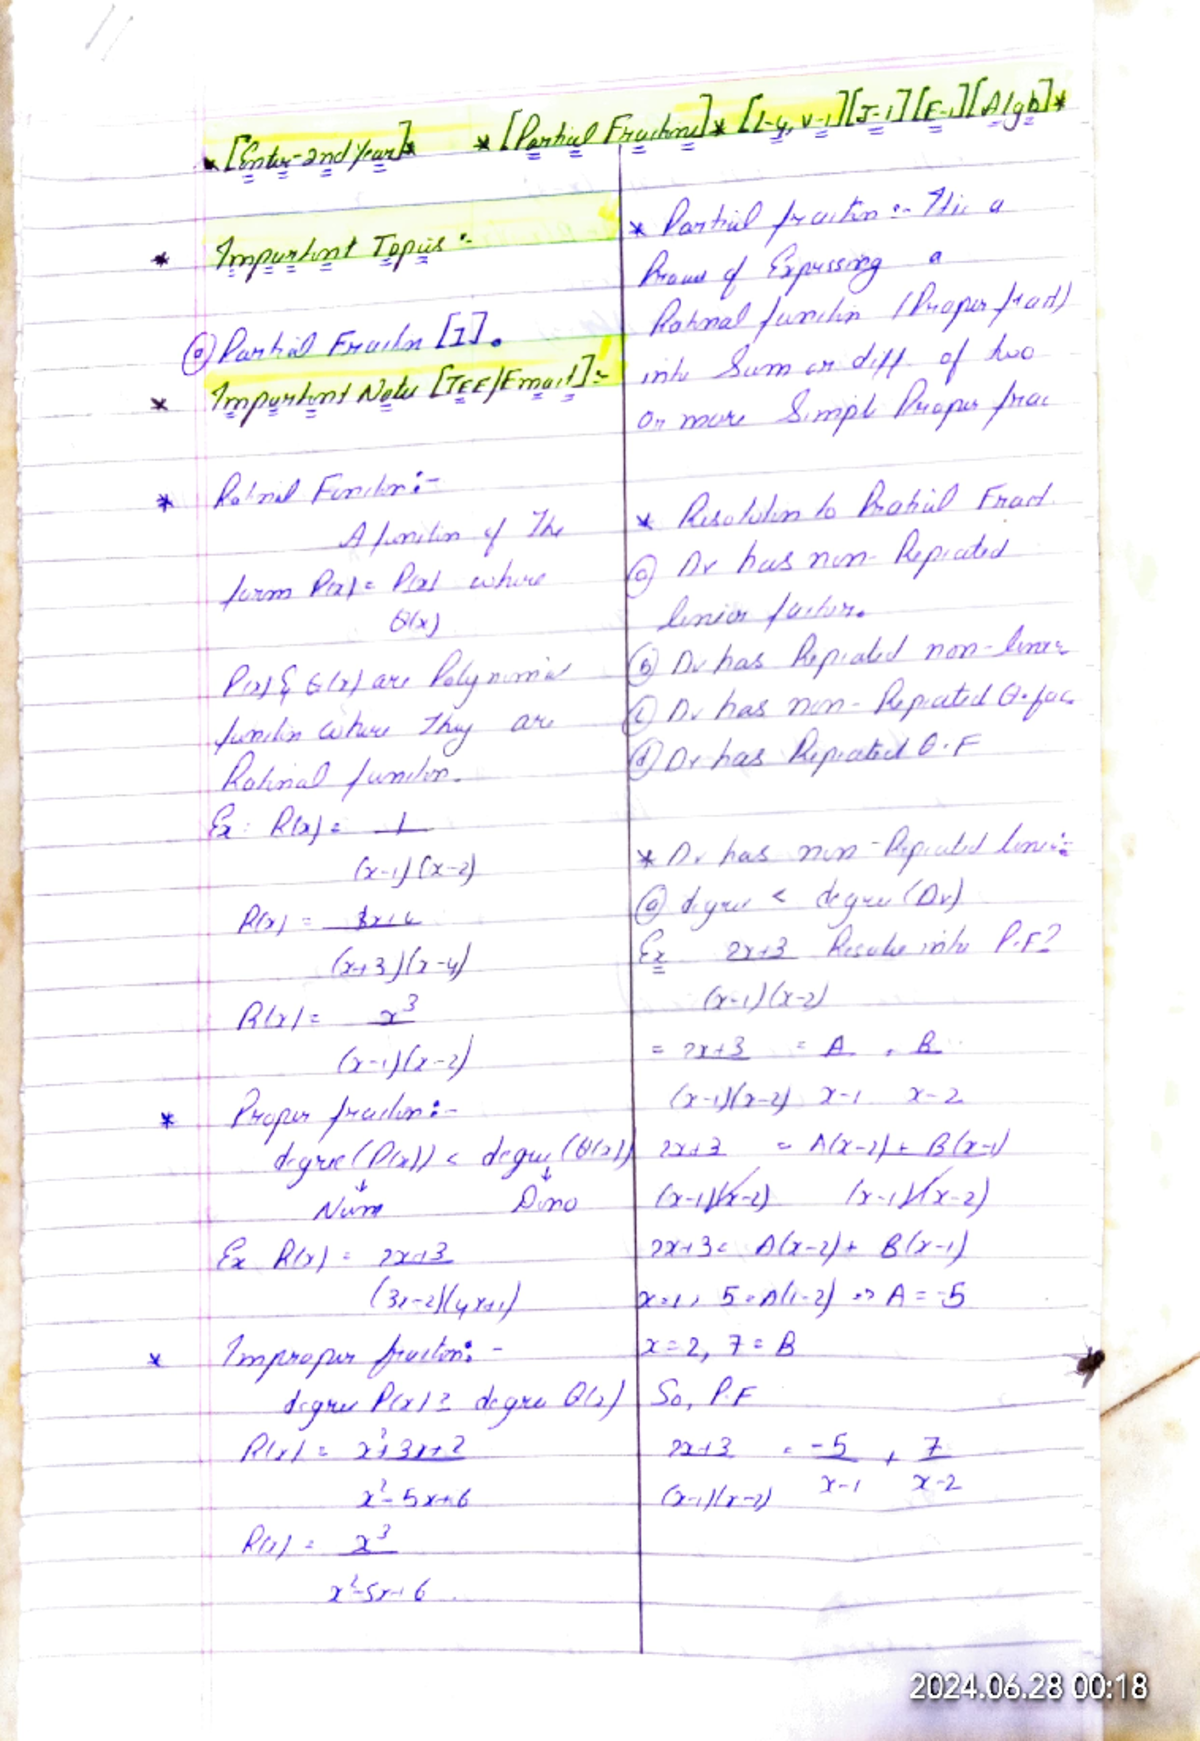 * [Enter-2nd Year]* * [Partial Fractions]* [L-4, V-1][J-1][E-1][Algb]*
* Important Topics :-
(a) Partial Fraction [1].
* Important Notes [JEE/Emact]:-
* Rational Function:-
A function of The
form P(x) = P(x) where
Q(x)
P(x) & Q(x) are Polynomial
function where They are
Rational function.
Ex: R(x) = 1
(x-1)(x-2)
R(x) =
(x+3)(x-4)
R(x) = x³
(x-1)(x-2)
* Proper fraction:-
degree(P(x)) < degree(Q(x))
↓ ↓
Num Dino
Ex R(x) = 2x+3
(3x-2)(4x+1)
* Improper fraction:-
degree P(x) ≥ degree Q(x)
R(x) = x²+3x+2
x²-5x+6
R(x) = x³
x²-5x+6
* Partial fraction :- This a
Process of Expressing a
Rational function (Proper fract)
into Sum or diff of two
or more Simple Proper frac
* Resolution to Pratial Fract.
(a) Dr has non-Repeated
linear factor.
(b) Dr has Repeated non-linear
(c) Dr has non-Repeated Q.fac.
(d) Dr has Repeated Q.F
* Dr has non-Repeated linear:-
(a) degree < degree (Dr)
Ex 2x+3 Resolve into P.F?
(x-1)(x-2)
= 2x+3 = A + B
(x-1)(x-2) x-1 x-2
2x+3 = A(x-2) + B(x-1)
(x-1)(x-2) (x-1)(x-2)
2x+3 = A(x-2) + B(x-1)
x=1, 5 = A(1-2) => A = -5
x=2, 7 = B
So, P.F
2x+3 = -5 + 7
(x-1)(x-2) x-1 x-2
2024.06.28 00:18